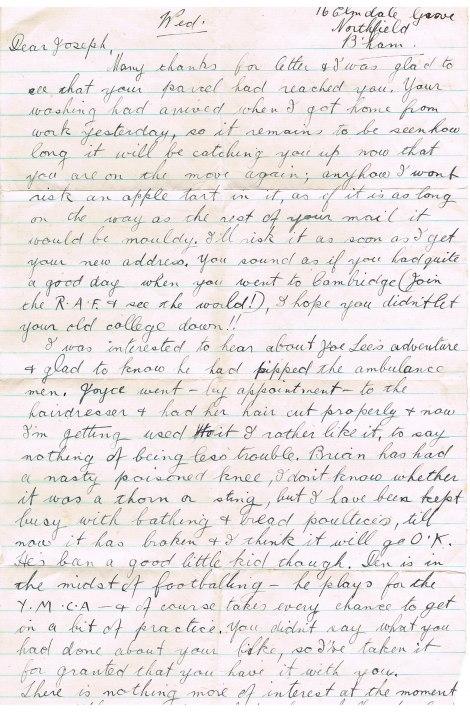 Wed.
16 Elmdale Grove
Northfield
B'ham.
Dear Joseph,
Many thanks for letter & I was glad to
see that your parcel had reached you. Your
washing had arrived when I got home from
work yesterday, so it remains to be seen how
long it will be catching you up now that
you are on the move again; anyhow I wont
risk an apple tart in it, as if it is as long
on the way as the rest of your mail it
would be mouldy. I'll risk it as soon as I get
your new address. You sound as if you had quite
a good day when you went to Cambridge (Join
the R.A.F. & see the world!), I hope you didn't let
your old college down!!
I was interested to hear about Joe Lee's adventure
& glad to know he had pipped the ambulance
men. Joyce went - by appointment - to the
hairdresser & had her hair cut properly & now
I'm getting used to it I rather like it, to say
nothing of being less trouble. Brian has had
a nasty poisoned knee, I don't know whether
it was a thorn or sting, but I have been kept
busy with bathing & bread poultices, till
now it has broken & I think it will go O'K.
He's ban a good little kid though. Den is in
the midst of footballing - he plays for the
Y.M.C.A - & of course takes every chance to get
in a bit of practice. You didn't say what you
had done about your bike, so I've taken it
for granted that you have it with you.
There is nothing more of interest at the moment